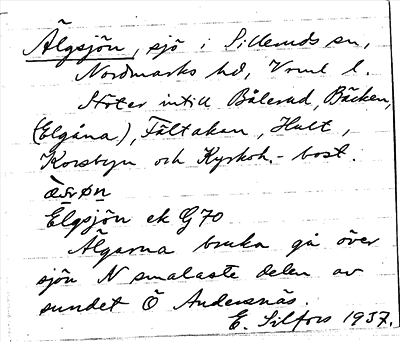 Älgsjön, sjö i Silleruds sn,
Nordmarks hd, Vrml l.
Stöter intill Bålerud, Bäcken,
(Elgåna), Fältakan, Hult,
Korsbyn och Kyrkoh.- bost.
Elgsjön ek G70
Älgarna bruka gå över
sjön N smalaste delen av
sundet Ö Andersnäs.
E. Silfors 1937.